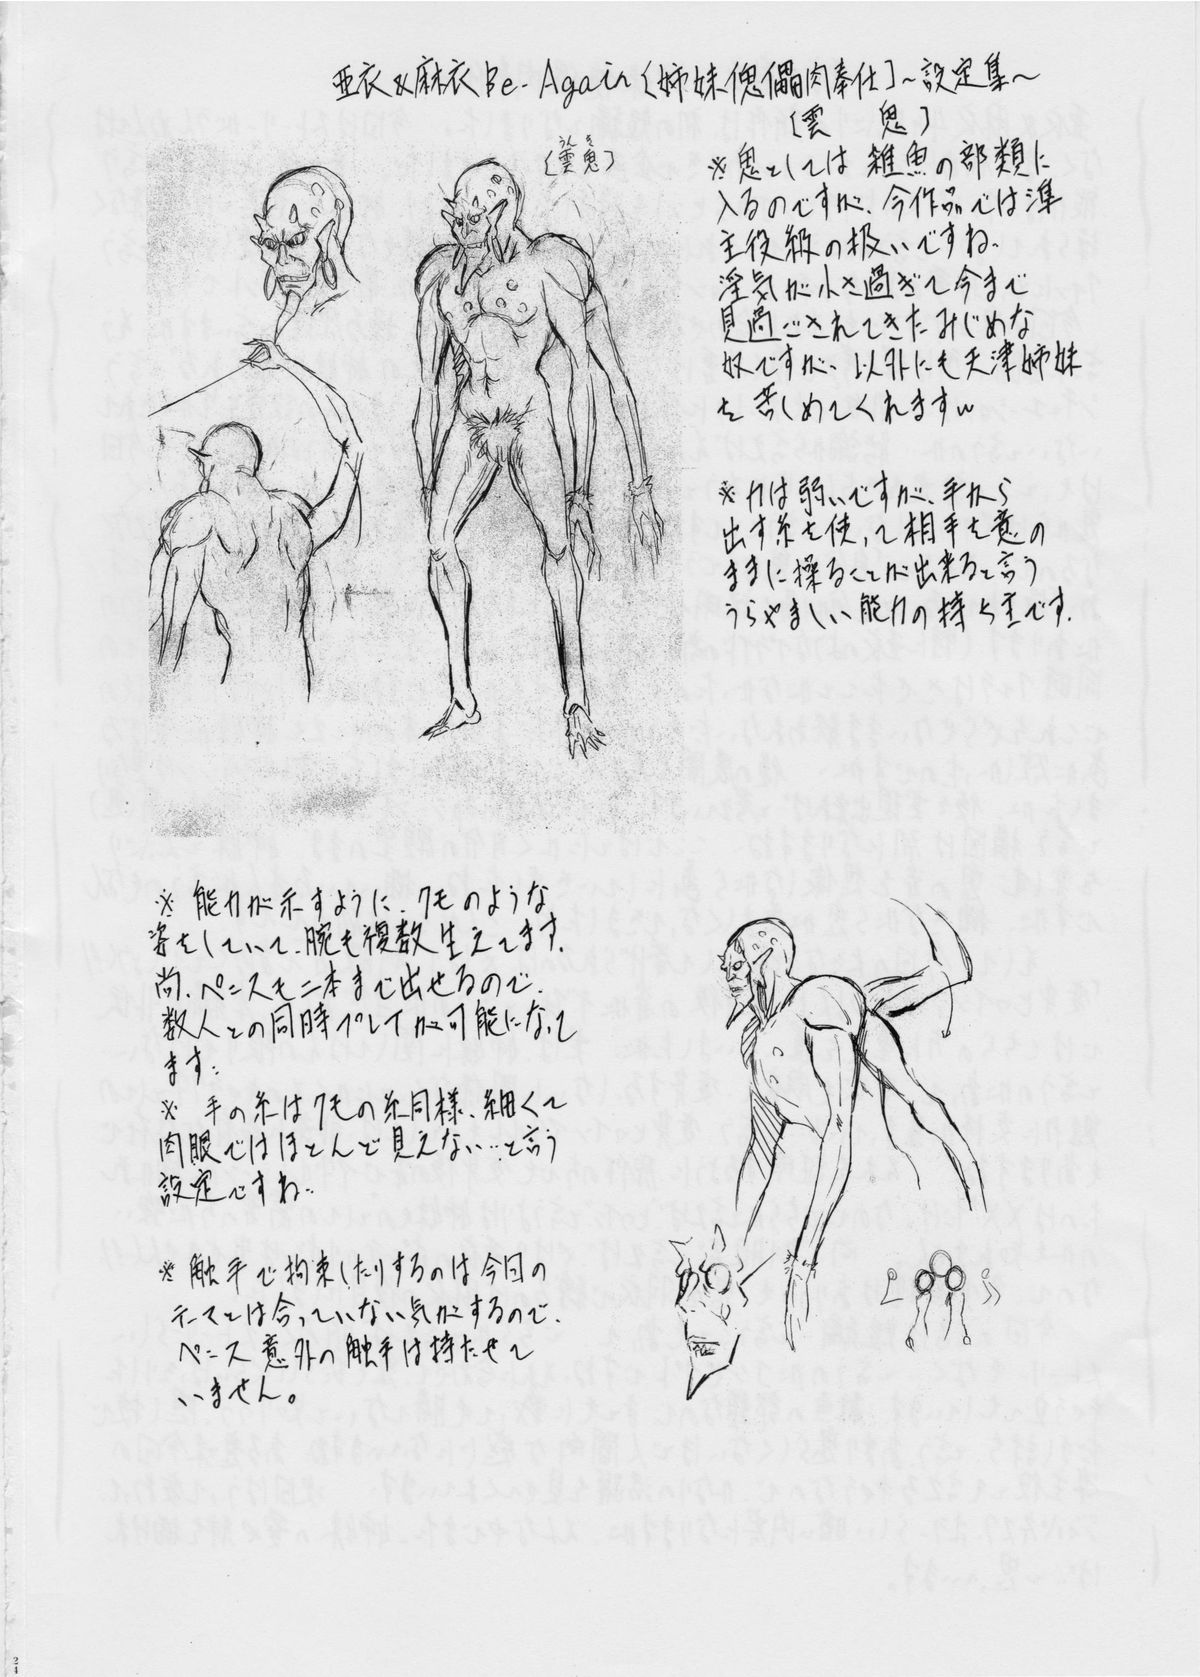 亜衣&麻衣Be-Again〔姉妹傀儡肉奉仕〕~設定集~
〔雲鬼〕
うんき
〔雲鬼〕
※鬼としては雑魚の部類に
入るのですが、今作品では準
主役級の扱いですね、
淫気が小さ過ぎて今まで
見過ごされてきたみじめな
奴ですが、以外にも天津姉妹
を苦しめてくれますw
※力は弱いですが、手から
出す糸を使って相手を意の
ままに操ることが出来ると言う
うらやましい能力の持ち主です.
※能力が示すように、クモのような
姿をしていて、腕も複数生えてます.
尚、ペニスも二本まで出せるので、
数人との同時プレイが可能になって
ます:
※手の糸はクモの糸同様、細くて
肉眼ではほとんど見えない…と言う
設定ですね..
※触手で拘束したりするのは今回の
テーマとは合っていない気がするので、
ペニス意外の触手は持たせて
いません。
24